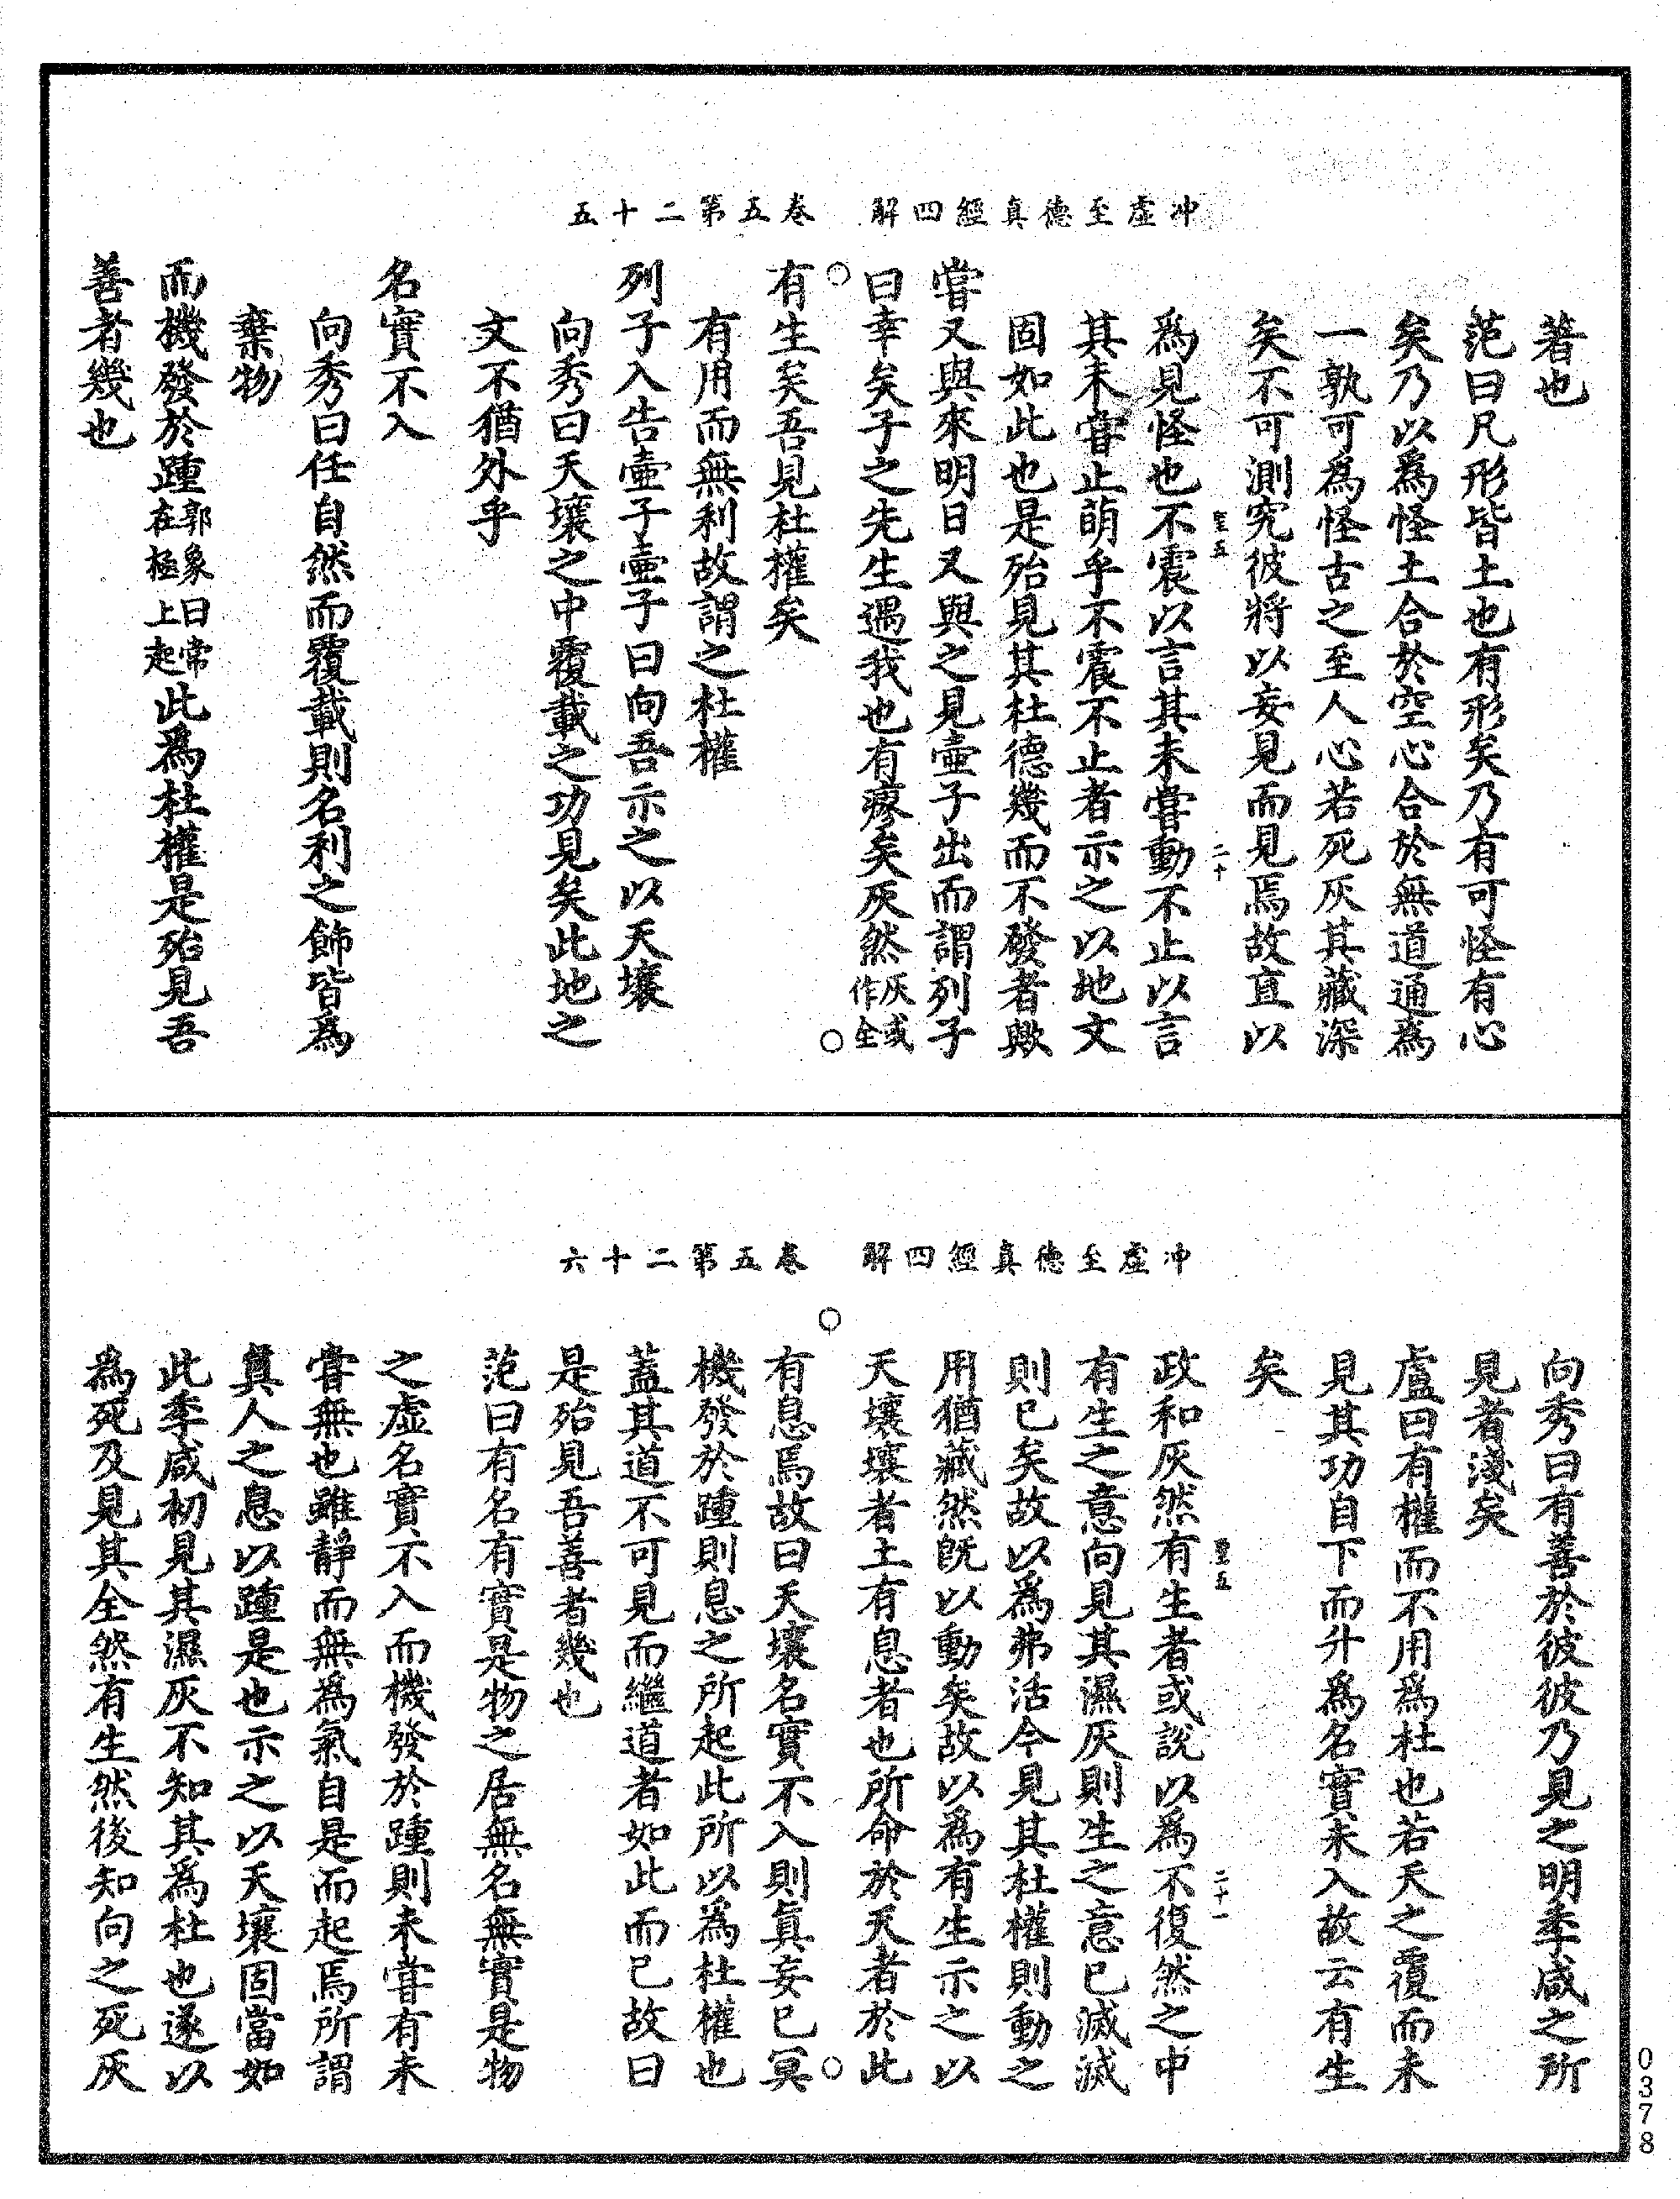 冲虛至德真經四解　卷五第二十五
著也
范曰凡形皆土也有形矣乃有可怪有心
矣乃以爲怪土合於空心合於無道通爲
一孰可爲怪古之至人心若死灰其藏深
矣不可測究彼將以妄見而見焉故直以
二十
爲見怪也不震以言其未嘗動不止以言
其未嘗止萌乎不震不止者示之以地文
固如此也是殆見其杜德幾而不發者歟
嘗又與來明日又與之見壺子出而謂列子
曰幸矣子之先生遇我也有瘳矣灰然灰或作全
有生矣吾見杜權矣
有用而無利故謂之杜權
列子入告壺子壺子曰向吾示之以天壤
向秀曰天壤之中覆載之功見矣此地之
文不猶外乎
名實不入
向秀曰任自然而覆載則名利之飾皆為
棄物
而機發於踵郭象曰常在極上起此爲杜權是殆見吾
善者幾也
冲虛至德真經四解　卷五第二十六
向秀曰有善於彼彼乃見之明季咸之所
見者淺矣
盧曰有權而不用爲杜也若天之覆而未
見其功自下而升爲名實未入故云有生
矣
二十一
政和灰然有生者或說以爲不復然之中
有生之意向見其濕灰則生之意已滅滅
則已矣故以爲弗活今見其杜權則動之
用猶藏然旣以動矣故以爲有生示之以
天壤壤者土有息者也所命於天者於此
有息焉故曰天壤名實不入則眞妄已冥
機發於踵則息之所起此所以爲杜權也
蓋其道不可見而繼道者如此而已故曰
是殆見吾善者幾也
范曰有名有實是物之居無名無實是物
之虛名實不入而機發於踵則未嘗有未
嘗無也雖靜而無爲氣自是而起焉所謂
眞人之息以踵是也示之以天壤固當如
此季咸初見其濕灰不知其爲杜也遂以
爲死及見其全然有生然後知向之死灰
0378